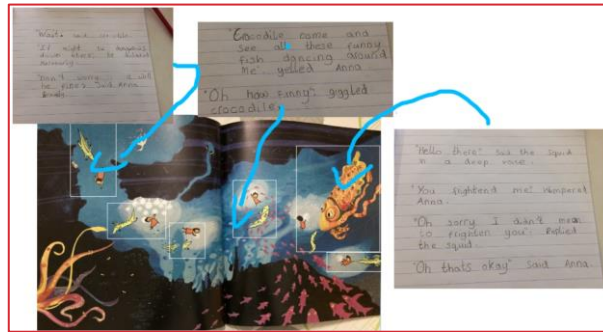 "Wait" said
"Don't worry it will
be fine" said Anna
"Crocodile come and
see all these funny
fish dancing around
me" yelled Anna
"Oh how funny" giggled
crocodile.
"Hello there" said the squid
in a deep voice.
"You frightend me" wimpered
Anna.
"Oh sorry I didn't mean
to frighten you" replied
the squid.
"Oh thats okay" said Anna.